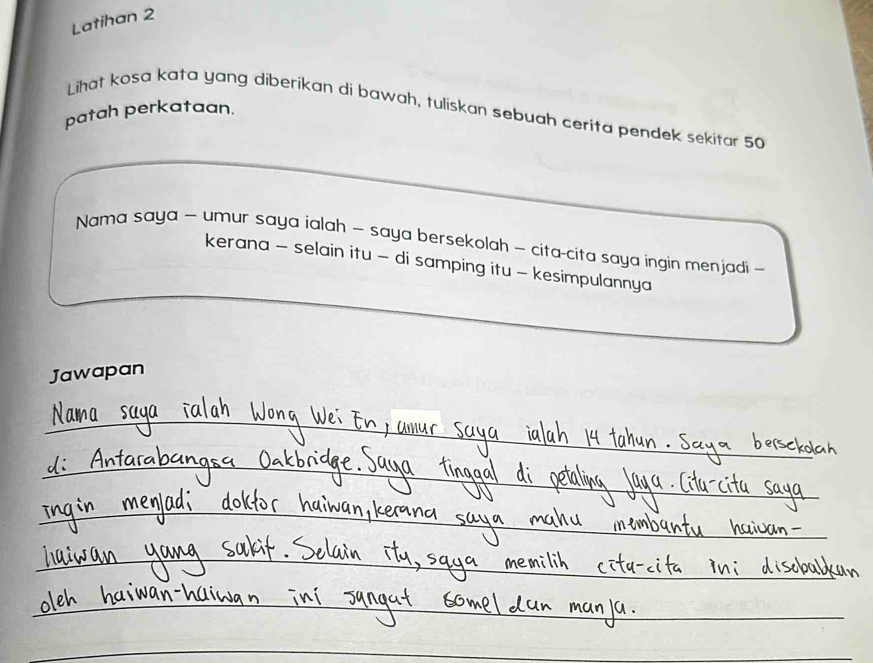 Latihan 2
Lihat kosa kata yang diberikan di bawah, tuliskan sebuah cerita pendek sekitar 50
patah perkataan.
Nama saya – umur saya ialah – saya bersekolah – cita-cita saya ingin menjadi –
kerana – selain itu – di samping itu – kesimpulannya
Jawapan
Nama saya ialah Wong Wei En, umur saya ialah 14 tahun. Saya bersekolah
di Antarabangsa Oakbridge. Saya tinggal di petaling Jaya. Cita-cita saya
ingin menjadi doktor haiwan, kerana saya mahu membantu haiwan-
haiwan yang sakit. Selain itu, saya memilih cita-cita ini disebabkan
oleh haiwan-haiwan ini sangat comel dan manja.